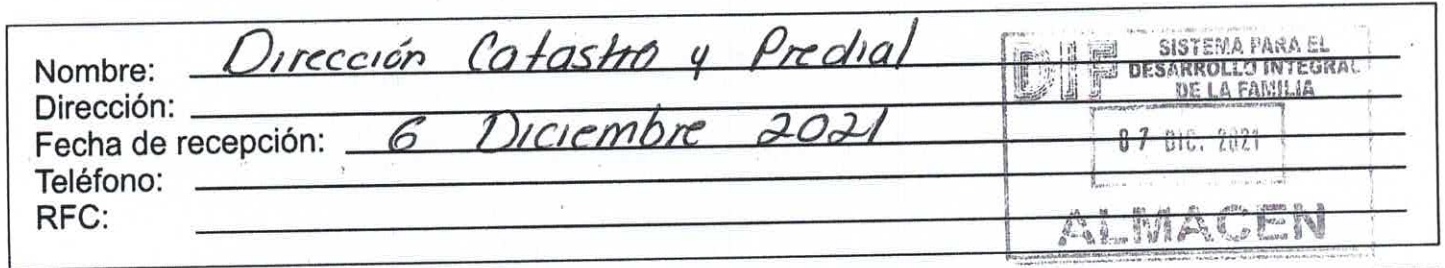 Nombre: Dirección Catastro y Predial
Dirección:
Fecha de recepción: 6 Diciembre 2021
Teléfono:
RFC:
DIF SISTEMA PARA EL
DESARROLLO INTEGRAL
DE LA FAMILIA
07 DIC. 2021
ALMACEN